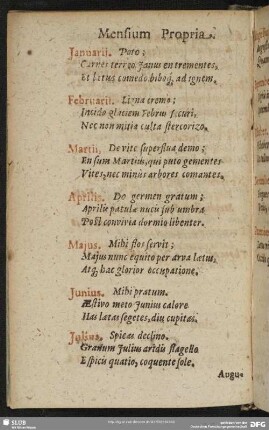 Mensium Propria.
Januarii. Poto;
Carnes terrgo Janus en trementes,
Et lætus comedo bibóq, ad ignem.
Februarii. Ligna cremo;
Incido glaciem Febrin securi,
Nec non mitia culta stercorizo.
Martii, De vite superflua demo;
En sum Martius, qui puto gementes
Vites, nec minùs arbores comantes.
Aprilis. Do germen gratum;
Aprilis patulæ nucis sub umbra
Post convivia dormio libenter.
Majus. Mihi flos servit;
Majus nunc equito per arva lætus,
Atq, hac glorior occupatione.
Junius. Mihi pratum.
Æstivo meto Junius calore
Has latas segetes, diu cupitas.
Julius. Spicas declino.
Granum Julius aridū flagello
E spicis quatio, coquente sole.
Augu-
SLUB